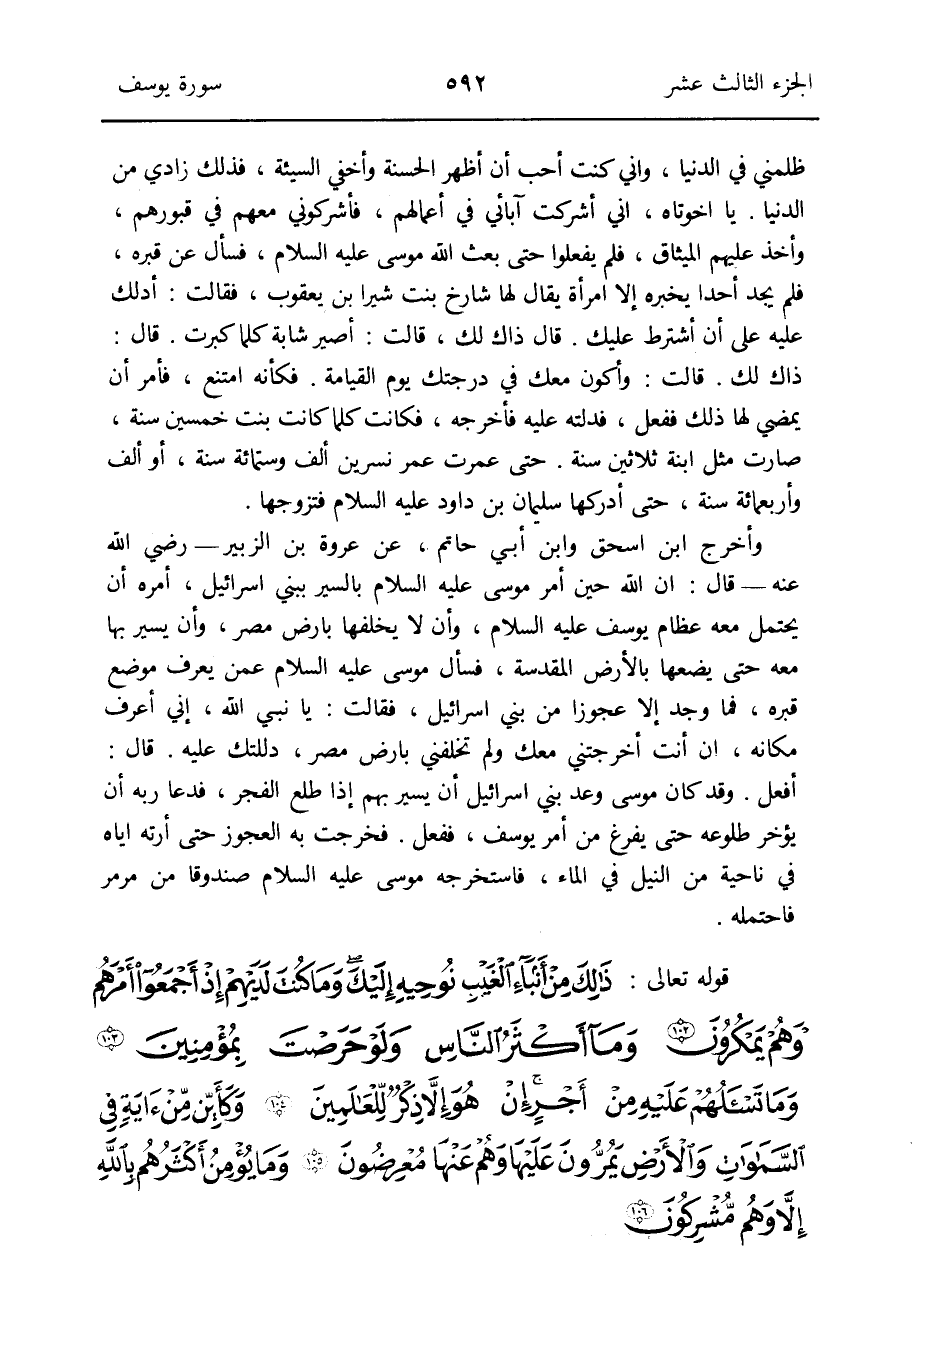 الجزء الثالث عشر ٥٩٢ سورة يوسف
ظلمني في الدنيا ، واني كنت أحب أن أظهر الحسنة وأخفي السيئة ، فذلك زادي من
الدنيا . يا اخوتاه ، اني أشركت آبائي في أعمالهم ، فأشركوني معهم في قبورهم ،
وأخذ عليهم الميثاق ، فلم يفعلوا حتى بعث الله موسى عليه السلام ، فسأل عن قبره ،
فلم يجد أحدا يخبره إلا امرأة يقال لها شارخ بنت شيرا بن يعقوب ، فقالت : أدلك
عليه على أن أشترط عليك . قال ذاك لك ، قالت : أصير شابة كلما كبرت . قال :
ذاك لك . قالت : وأكون معك في درجتك يوم القيامة . فكأنه امتنع ، فأمر أن
يمضي لها ذلك ففعل ، فدلته عليه فأخرجه ، فكانت كلما كانت بنت خمسين سنة ،
صارت مثل ابنة ثلاثين سنة . حتى عمرت عمر نسرين ألف وستمائة سنة ، أو ألف
وأربعمائة سنة ، حتى أدركها سليمان بن داود عليه السلام فتزوجها .
وأخرج ابن اسحق وابن أبي حاتم ، عن عروة بن الزبير — رضي الله
عنه — قال : ان الله حين أمر موسى عليه السلام بالسير ببني اسرائيل ، أمره أن
يحتمل معه عظام يوسف عليه السلام ، وأن لا يخلفها بارض مصر ، وأن يسير بها
معه حتى يضعها بالأرض المقدسة ، فسأل موسى عليه السلام عمن يعرف موضع
قبره ، فما وجد إلا عجوزا من بني اسرائيل ، فقالت : يا نبي الله ، إني أعرف
مكانه ، ان أنت أخرجتني معك ولم تخلفني بارض مصر ، دللتك عليه . قال :
أفعل . وقد كان موسى وعد بني اسرائيل أن يسير بهم إذا طلع الفجر ، فدعا ربه أن
يؤخر طلوعه حتى يفرغ من أمر يوسف ، ففعل . فخرجت به العجوز حتى أرته اياه
في ناحية من النيل في الماء ، فاستخرجه موسى عليه السلام صندوقا من مرمر
فاحتمله .
قوله تعالى : ذَٰلِكَ مِنْ أَنۢبَآءِ ٱلْغَيْبِ نُوحِيهِ إِلَيْكَ ۖ وَمَا كُنتَ لَدَيْهِمْ إِذْ أَجْمَعُوٓا۟ أَمْرَهُمْ
وَهُمْ يَمْكُرُونَ ۝١٠٢ وَمَآ أَكْثَرُ ٱلنَّاسِ وَلَوْ حَرَصْتَ بِمُؤْمِنِينَ ۝١٠٣
وَمَا تَسْـَٔلُهُمْ عَلَيْهِ مِنْ أَجْرٍ ۚ إِنْ هُوَ إِلَّا ذِكْرٌ لِّلْعَٰلَمِينَ ۝١٠٤ وَكَأَيِّن مِّنْ ءَايَةٍ فِى
ٱلسَّمَٰوَٰتِ وَٱلْأَرْضِ يَمُرُّونَ عَلَيْهَا وَهُمْ عَنْهَا مُعْرِضُونَ ۝١٠٥ وَمَا يُؤْمِنُ أَكْثَرُهُم بِٱللَّهِ
إِلَّا وَهُم مُّشْرِكُونَ ۝١٠٦